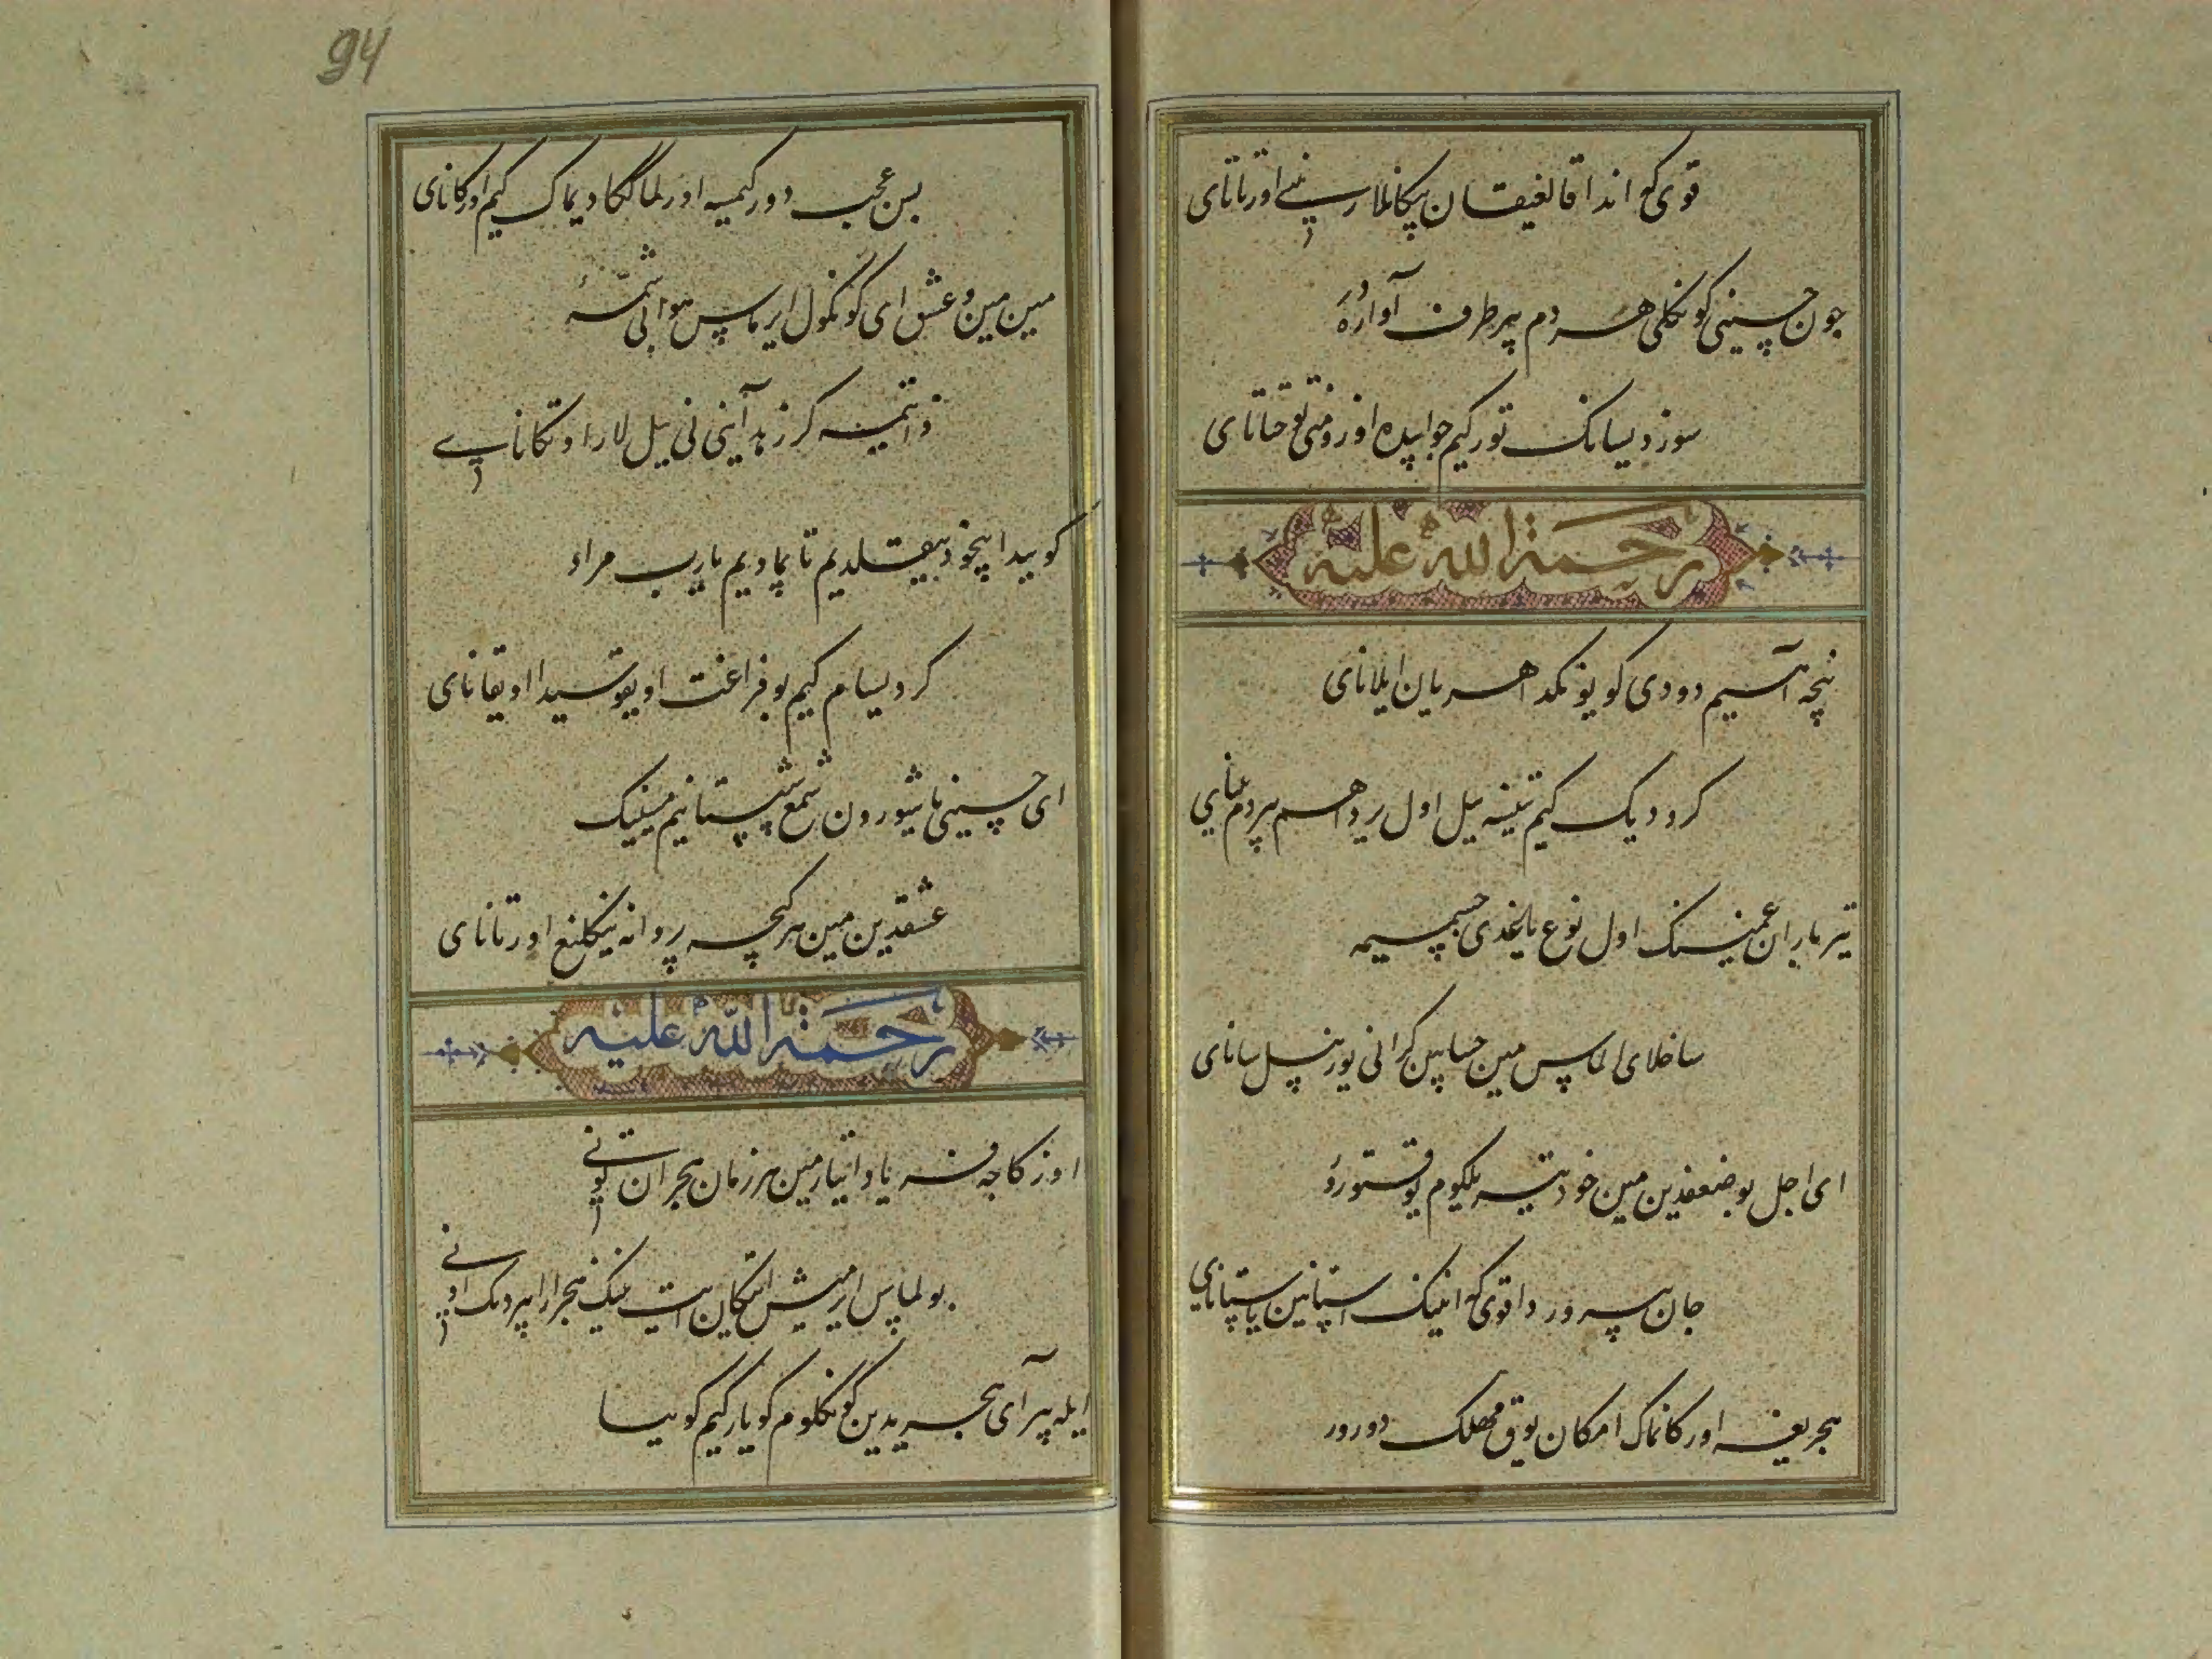 قوی کم اندا قالغیقسان پیکانلارینی اورتانای
چون حسینی کونکلی هر دم بیر طرف آواره دور
سوز دیسانک تور کیم جوابیده اوزومنی توختاتای
رحمة الله علیه
نیچه آهیم دودی کویونکدا هر یان ایلانای
کرد دیک کیم تینه بیل اول یردا هم بیر دم
تیر باران غمینک اول نوع یاغدی جسمیمه
ساخلای الماس مین حسابین کرانی یوز ییل سانای
ای اجل بو ضعفدین مین خود یته بلکوم یوقتورور
جان بیرور دا قوی که انینک استانین یاستانای
هجریغه اورکانماک امکان یوق مهلک دورور
94
بس عجب دور کیمسه اورلماکلکا دیماک کیم اورکانای
مین مین و عشق ای کونکول ایرماس هوالی شمه
ذاتیمنه کر زهد آیینی نی بیل لار اوتکانای
کوییدا بیخود ییقیلدیم تاپمادیم یارب مراد
کر دیسام کیم بو فراغت اویقوسیدا اویقانای
ای حسینی یاشورون شمع شبستانیم مینینک
عشقدین مین هر کیچه پروانه ینکلیغ اورتانای
رحمة الله علیه
اوزکاچه فریاد ایتارمین هر زمان هجران تونی
بولماس ایرمیش ایتکان ایت مینک هجر ارا بیردیک اونی
ایله بیر آی هجریدین کونکلوم کویار کیم کوییسا